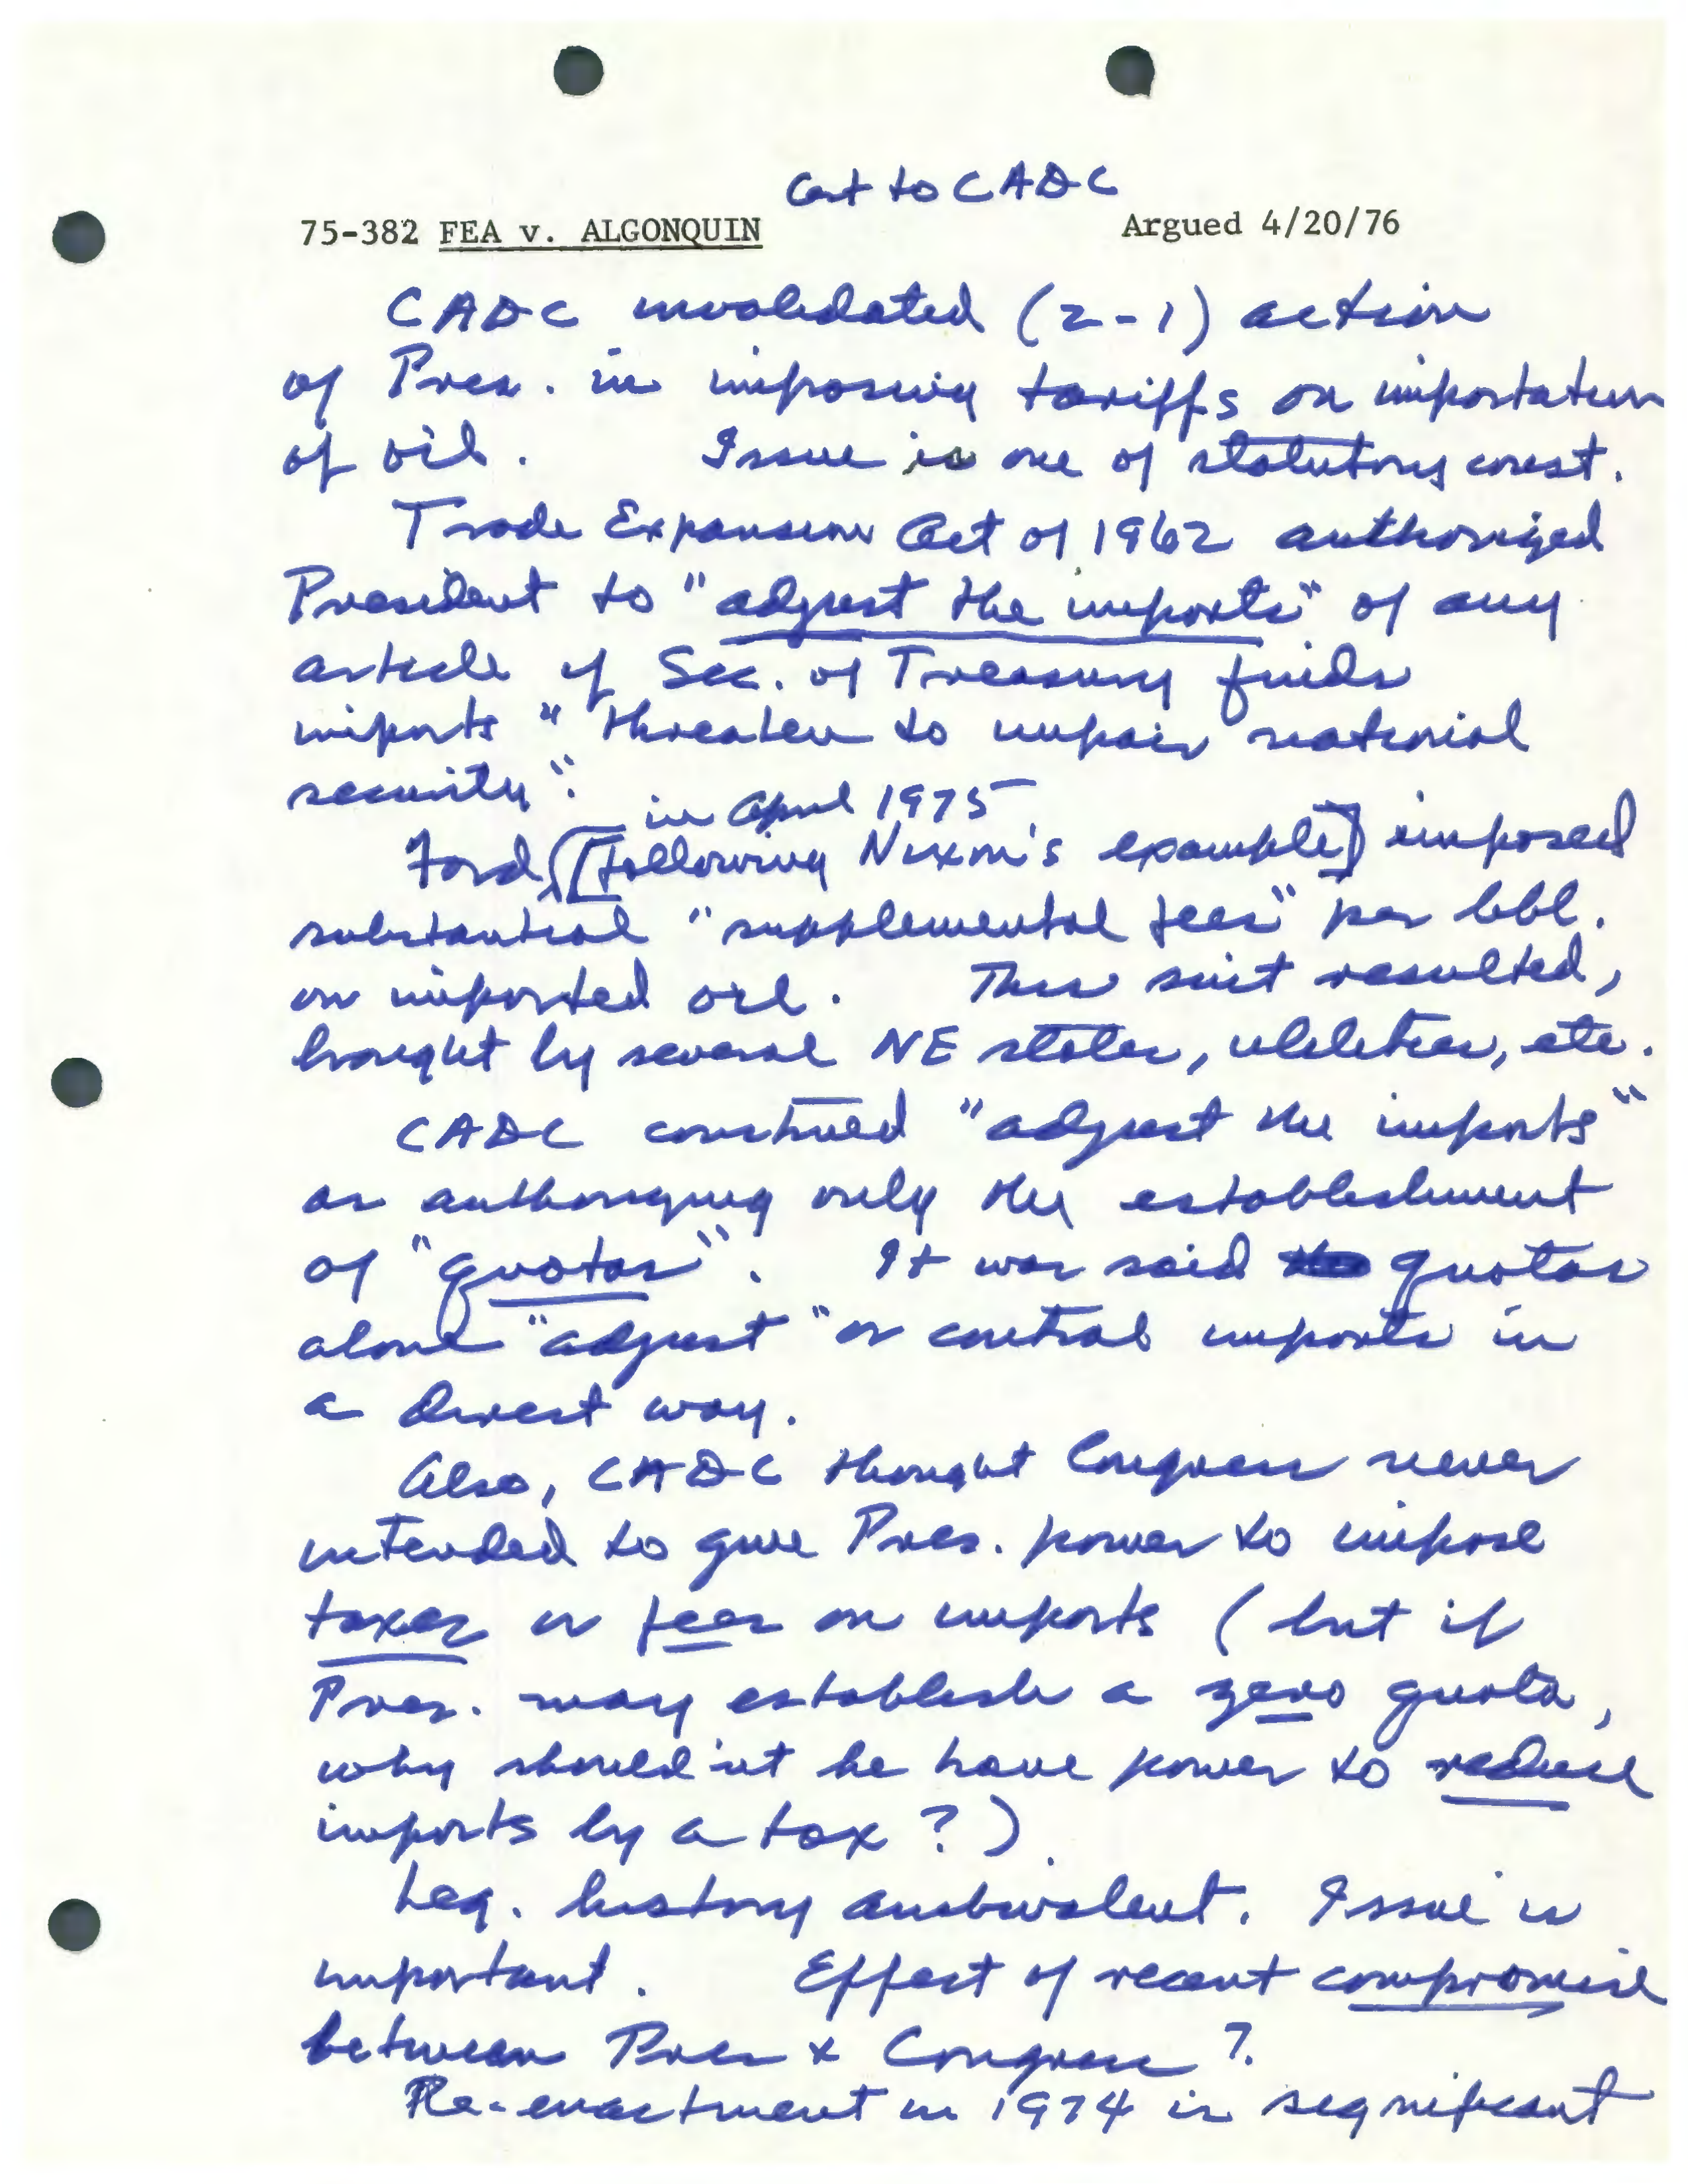 Cert to CADC
75-382 FEA v. ALGONQUIN Argued 4/20/76
CADC invalidated (2-1) action
of Pres. in imposing tariffs on importation
of oil. Issue is one of statutory const.
Trade Expansion Act of 1962 authorized
President to "adjust the imports" of any
article if Sec. of Treasury finds
imports "threaten to impair national
security".
in April 1975
Ford, [following Nixon's example] imposed
substantial "supplemental fees" per bbl.
on imported oil. This suit resulted,
brought by several NE states, utilities, etc.
CADC construed "adjust the imports"
as authorizing only the establishment
of "quotas". It was said quotas
alone "adjust" or control imports in
a direct way.
Also, CADC thought Congress never
intended to give Pres. power to impose
taxes or fees on imports (but if
Pres. may establish a zero quota,
why should'nt he have power to reduce
imports by a tax?).
Leg. history ambivalent. Issue is
important. Effect of recent compromise
between Pres & Congress?
Re-enactment in 1974 is significant